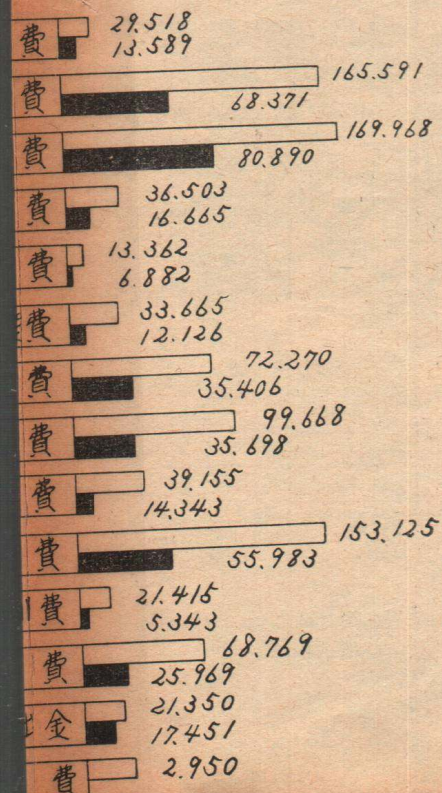 費 29.518
13.589
費 165.591
68.371
費 169.968
80.890
費 36.503
16.665
費 13.362
6.882
費 33.665
12.126
費 72.270
35.406
費 99.668
35.698
費 39.155
14.343
費 153.125
55.983
費 21.415
5.343
費 68.769
25.969
金 21.350
17.451
費 2.950